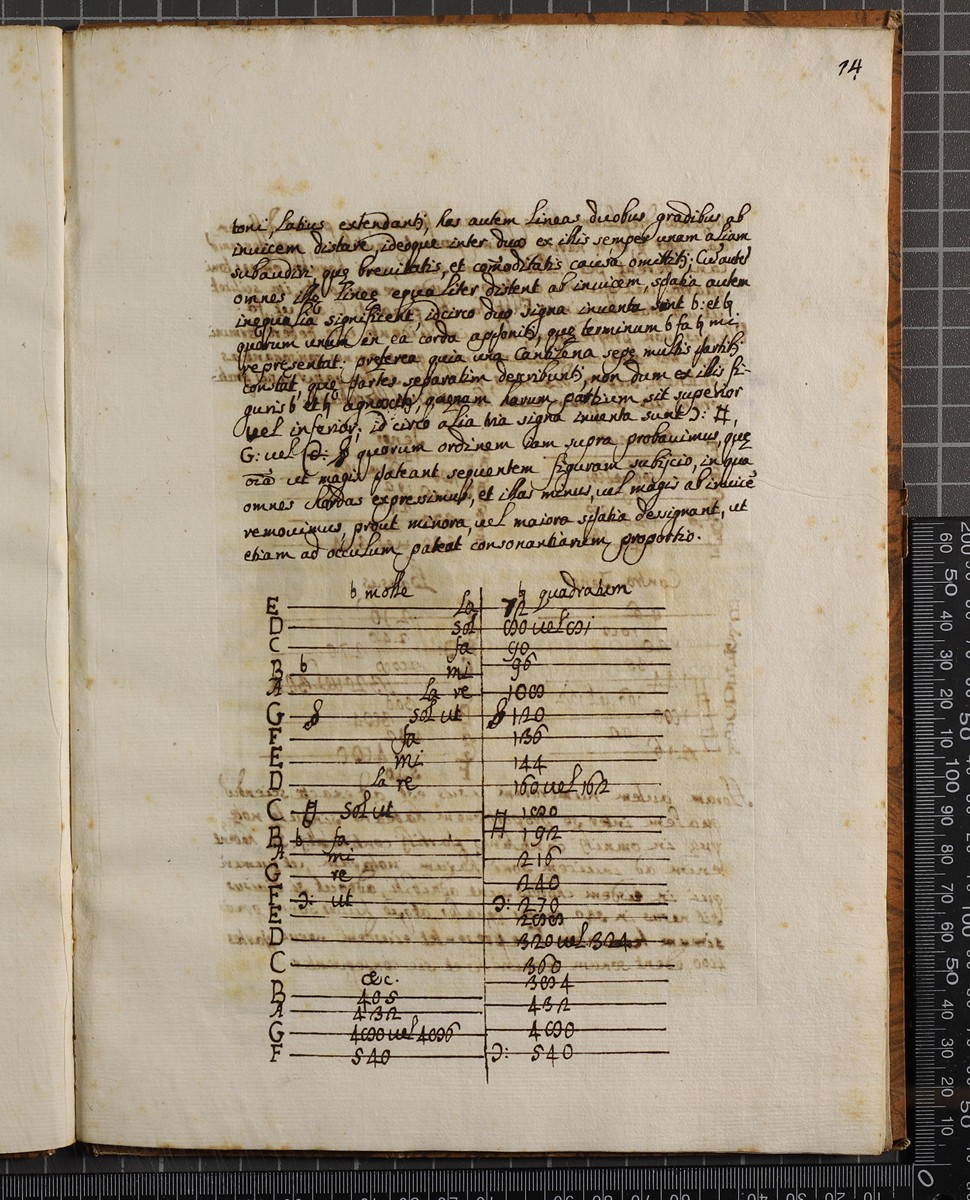 14
toni, latius extendantʒ, has autem lineas duobus gradibus ab
invicem distare, ideoque inter duas ex illis semper unam aliam
subaudiri, quę brevitatis, et com̃oditatis causa omittitʒ; Cũ autẽ
omnes illę lineę equaliter distent ab invicem, spatia autem
inequalia significent, idcirco duo signa inventa sunt b: et ♮
quorum unum in ea corda apponitʒ, quę terminum b fa ♮ mi
representat. pręterea quia una Cantilena sępe multis partibʒ
constat, quę partes separatim describuntʒ, non dum ex illis fi-
guris b et ♮ agnoscitʒ, quęnam harum partium sit superior
vel inferior; id circo alia tria signa inventa sunt Ɔ:
G: vel quorum ordinem iam supra probavimus, quę
oĩa ut magis pateant sequentem figuram subijcio, in qua
omnes chordas expressimus, et illas minus, vel magis ab invicẽ
removimus, prout minora, vel maiora spatia dessignant, ut
etiam ad occulum pateat consonantiarum proportio.
b molle ♮ quadratum
E la 72
D sol 80 vel 81
C fa 90
B b mi 96
A la re 108
G sol ut 120
F fa 136
E mi 144
D la re 160 vel 162
C sol ut 180
B b fa 192
A mi 216
G re 240
F Ɔ: ut Ɔ: 270
E 288
D 320 vel 324
C 360
&c. 384
B 405
A 432 432
G 480 vel 486 480
F 540 Ɔ: 540